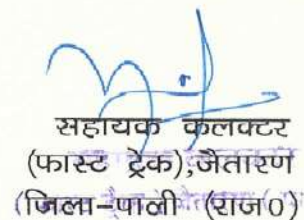 सहायक कलक्टर
(फास्ट ट्रेक),जैतारण
(जिला-पाली (राज0)